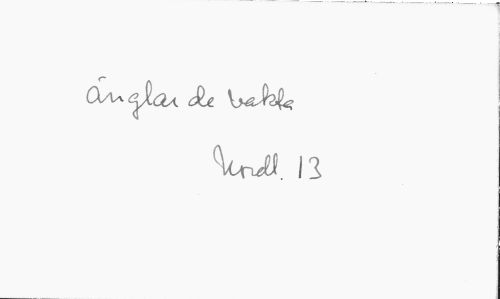 änglar de vakta
Nordl. 13